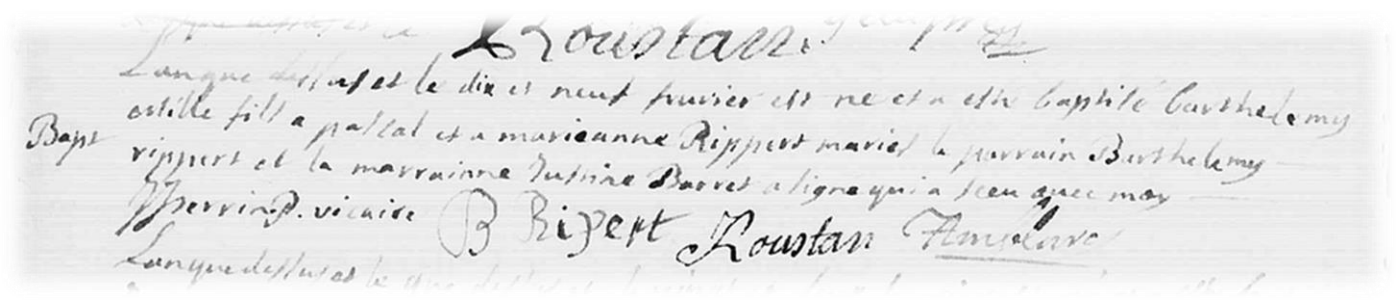 Roustan
Lanque dessus et le dix et neuf fevrier est ne et a esté baptisé barthelemy
astille fils a passal et a marieanne Rippert mariés le parrain Barthelemy
Bapt
rippert et la marrainne Justine Barret a signe qui a sceu avec moy
Perrin P. vicaire B Ripert Roustan
Lanque dessus et le